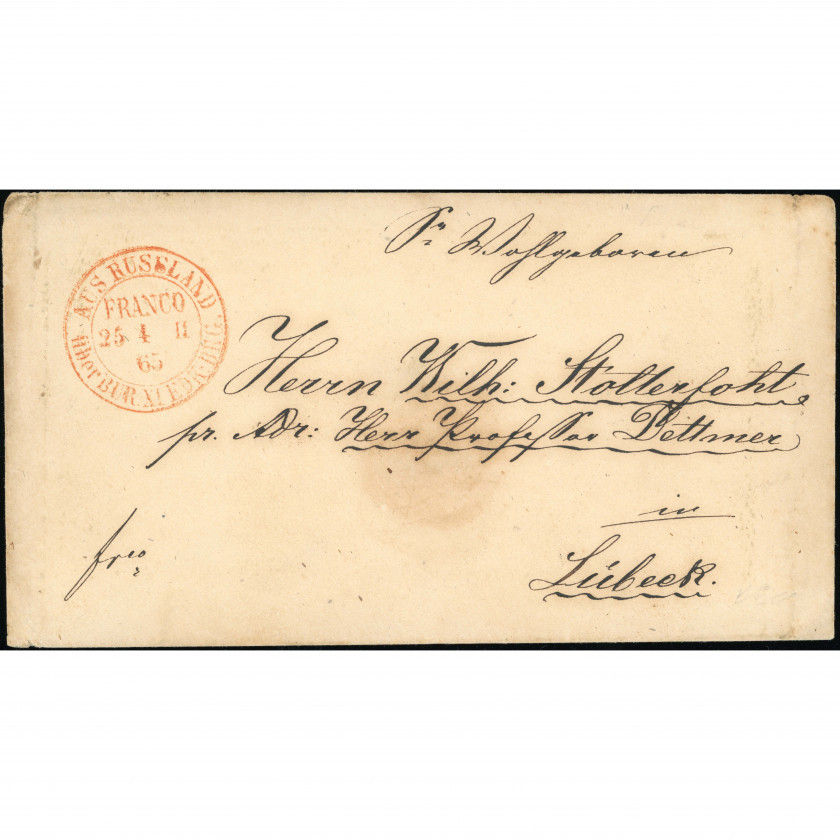 Sr Wohlgeboren
AUS RUSSLAND
FRANCO
25 4 II
65
über BUR. XI EDK. BRG.
Herrn Wilh: Stolterfoht
pr. Adr: Herr Professor Dettmer
in
frco
Lübeck.